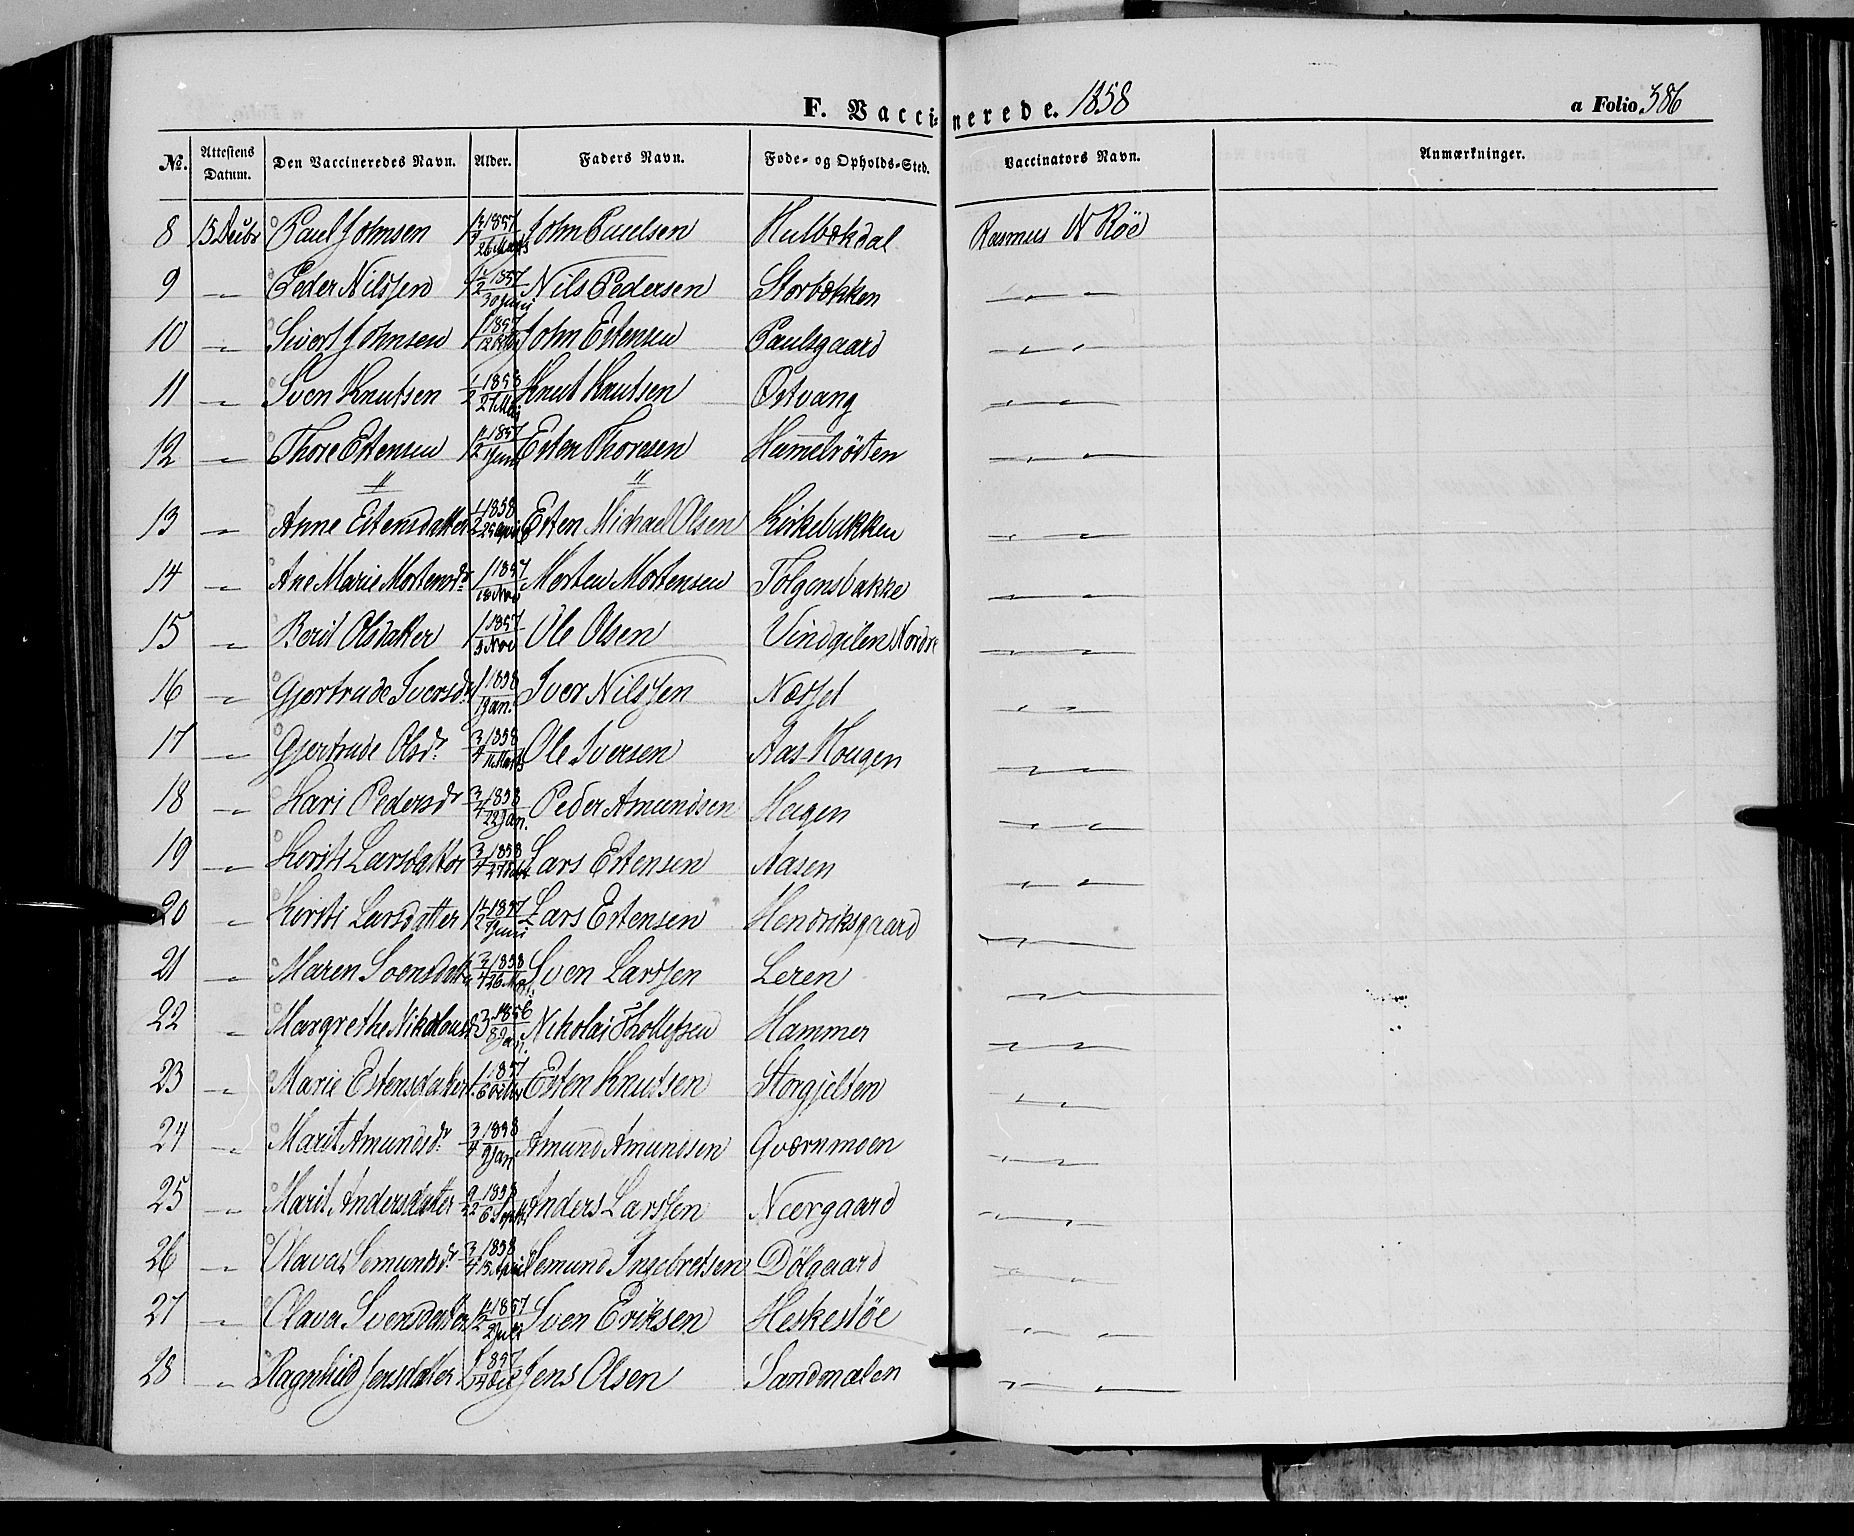 F. Vaccinerede. 1858
a Folio 386
No. Attestens Datum. Den Vaccineredes Navn. Alder. Faders Navn. Føde- og Opholds-Sted. Vaccinators Navn. Anmærkninger.
8 15 Paul Johnsen 1857 John Paulsen Hulbækdal Rasmus N Röe
9 -"- Peder Nilssen 1 1/2 1857 30 Juni Nils Pedersen Storbækken -"-
10 -"- Sivert Johnsen 1 1857 John Estensen Paulsgaard -"-
11 -"- Sven Knutsen 1/2 1858 Knut Knutsen Østvang -"-
12 -"- Thore Estensen 1 1/2 1857 Juni Esten Thoresen -"-
" "
13 -"- Anne Estensdatter 1/2 1858 Esten Michael Olsen Kirkebakken -"-
14 -"- Ane Marie Mortensdr 1 1857 18 Nov Morten Mortensen Tolgensbakke -"-
15 -"- Berit Olsdatter 1 1857 Nov Ole Olsen Vindgilen Nordre -"-
16 -"- Gjertrude Iversdr 1 1858 Jan. Iver Nilssen Næsset -"-
17 -"- Gjertrude Olsdr 3/4 1858 11 Marts Ole Iversen Aas-Hougen -"-
18 -"- Kari Pedersdr 3/4 1858 22 Jan. Peder Amundsen Haugen -"-
19 -"- Kersti Larsdatter 3/4 1858 Lars Estensen Aasen -"-
20 -"- Kersti Larsdatter 1 1/2 1857 Juni Lars Estensen Hendriksgaard -"-
21 -"- Maren Svensdatter 3/4 1858 Sven Larssen Leren -"-
22 -"- Margrethe Nikolaisdr 3 1856 8 Jan. Nikolai Thollefsen Hammer -"-
23 -"- Marie Estensdatter 1 1857 6 Esten Knudsen Storgjelten -"-
24 -"- Marit Amundsdr 3/4 1858 9 Jan Amund Amundsen Qværnmoen -"-
25 -"- Marit Andersdatter 1858 6 Anders Larssen Neergaard -"-
26 -"- Olava Semundsdr 3/4 1858 15 April Semund Ingebretsen Dölgaard -"-
27 -"- Olava Svensdatter 1 1/2 1857 2 Juli Sven Eriksen Heskestöe -"-
28 -"- Ragnhild Jensdatter 1 1857 Jens Olsen Sandmælen -"-